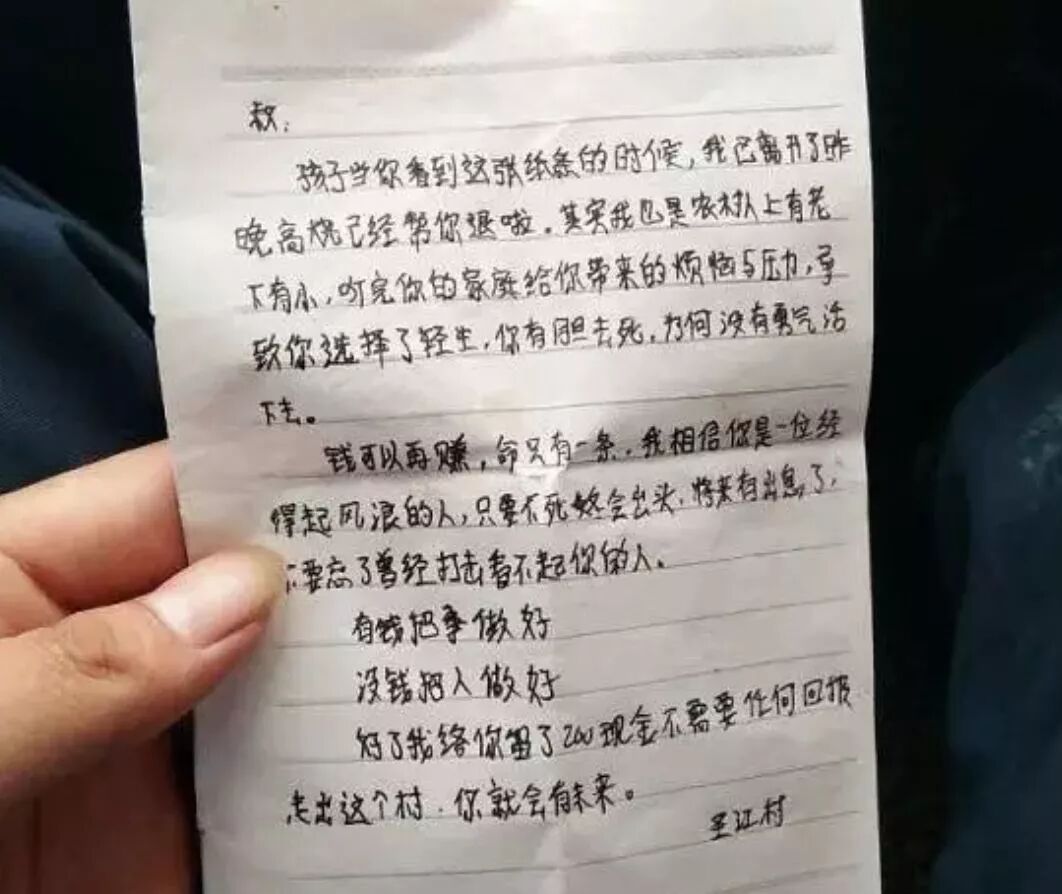 叔：
孩子当你看到这张纸条的时候，我已离开了昨
晚高烧已经帮你退啦。其实我也是农村人上有老
下有小，听完你的家庭给你带来的烦恼与压力，导
致你选择了轻生，你有胆去死，为何没有勇气活
下去。
钱可以再赚，命只有一条，我相信你是一位经
得起风浪的人，只要不死终会出头，将来有出息了，
要忘了曾经打击看不起你的人。
有钱把事做好
没钱把人做好
好了我给你留了200现金不需要任何回报
走出这个村，你就会有未来。
江村